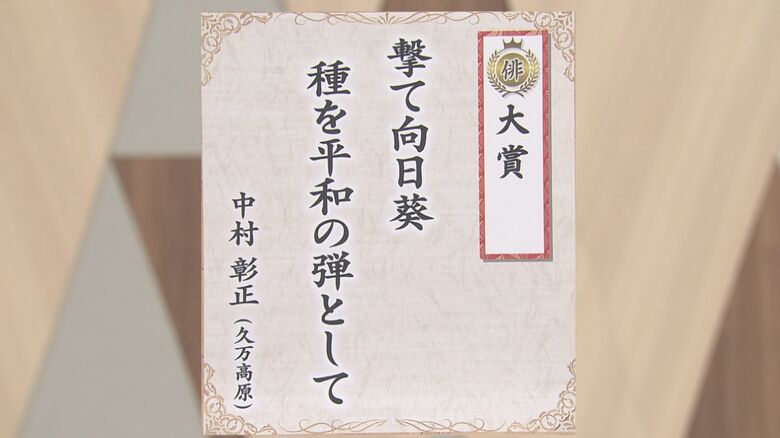 俳
大賞
撃て向日葵
種を平和の弾として
中村 彰正（久万高原）